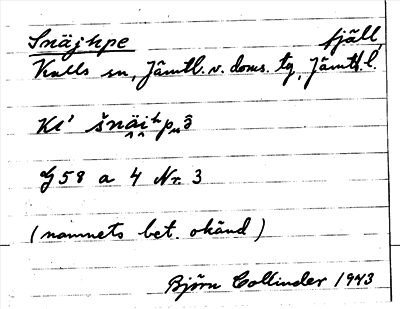 Snäjhpe fjäll,
Kalls sn, Jämtl. v. doms. tg, Jämtl. l.
Kl' šnäi̯ʰpₙɔ̂
G 58 a 4 Nr. 3
(namnets bet. okänd)
Björn Collinder 1943